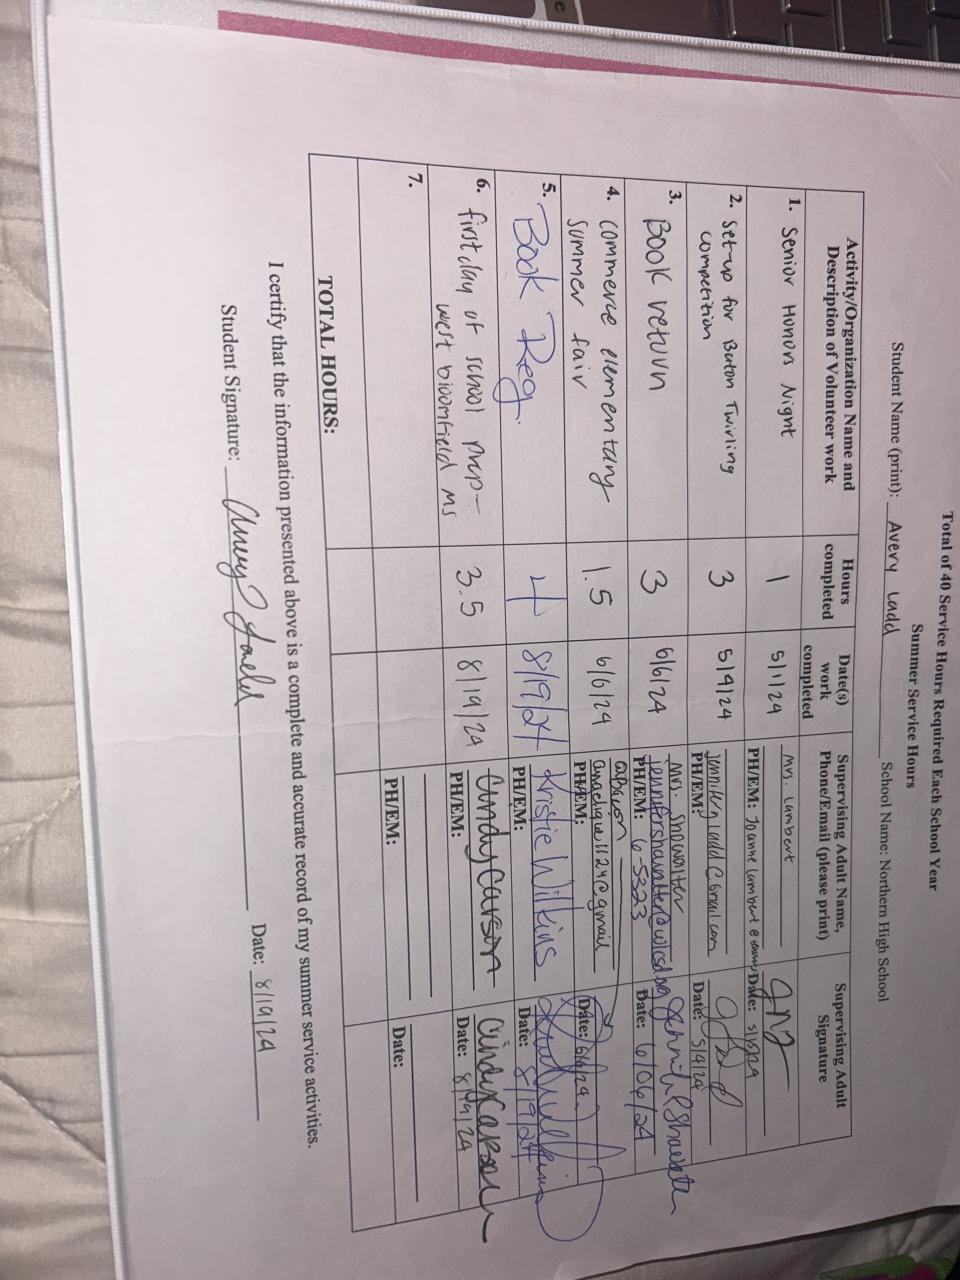 Total of 40 Service Hours Required Each School Year
Summer Service Hours
Student Name (print): Avery Ladd School Name: Northern High School
Activity/Organization Name and Description of Volunteer work
Hours completed
Date(s) work completed
Supervising Adult Name, Phone/Email (please print)
Supervising Adult Signature
1. Senior Honors Night
1
5/1/24
Mrs. Lambert
PH/EM: Joanne lambert @
Date:
2. set-up for Baton Twirling
competition
3
5/4/24
Jennifer y ladd @ Gmail.com
PH/EM:
Date: 5/4/24
3. Book return
3
6/6/24
Mrs. Showalter
PH/EM: 6-5323
Date: 6/06/24
4. commerce elementary
summer fair
1.5
6/6/24
PH/EM:
Date: 6/6/24
5. Book Reg.
4
8/19/24
Kristie Wilkins
PH/EM:
Date: 8/19/24
6. first day of school prep-
west bloomfield ms
3.5
8/19/24
Cindy Carson
PH/EM:
Cindy Carson
Date: 8/19/24
7.
PH/EM:
Date:
TOTAL HOURS:
I certify that the information presented above is a complete and accurate record of my summer service activities.
Student Signature: Avery Ladd Date: 8/19/24